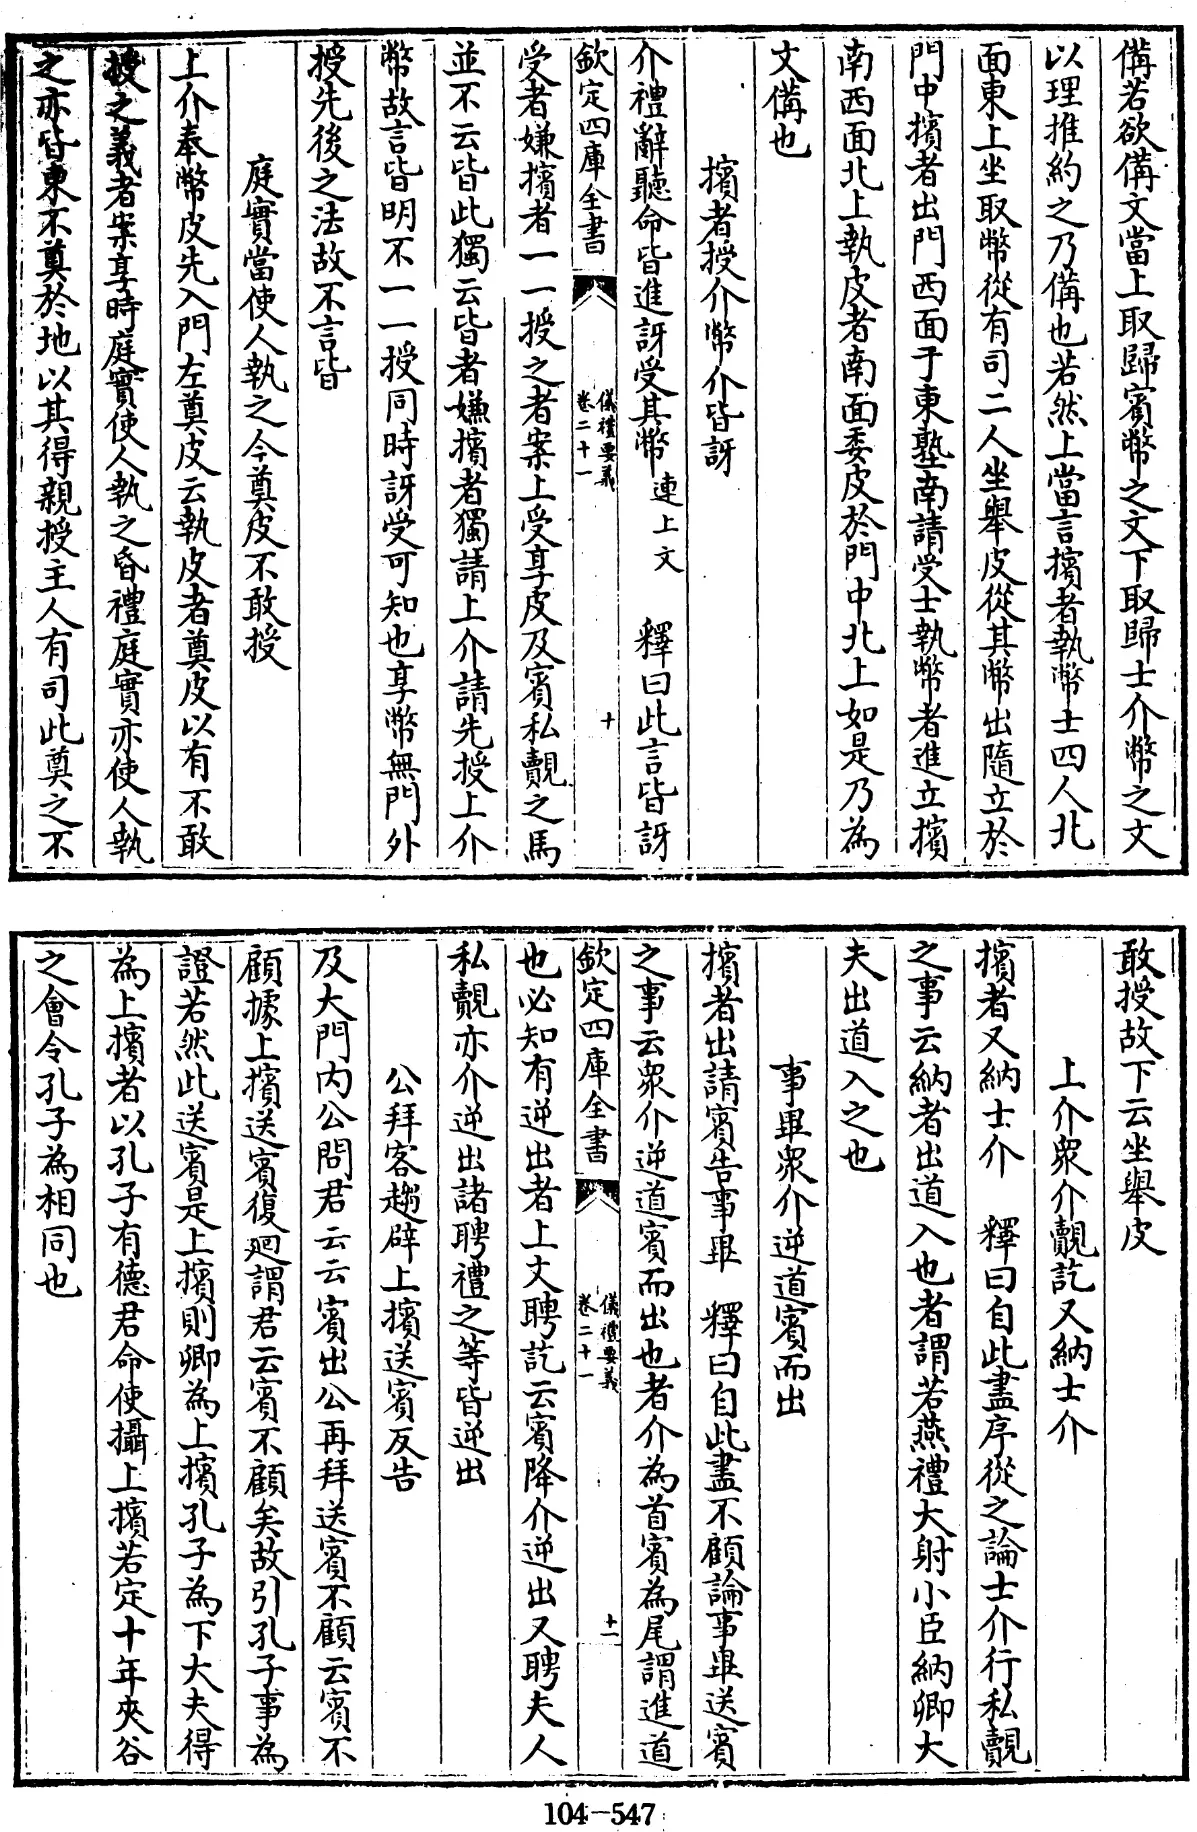 備若欲備文當上取歸賓幣之文下取歸士介幣之文
以理推約之乃備也若然上當言擯者執幣士四人北
面東上坐取幣從有司二人坐舉皮從其幣出隨立於
門中擯者出門西面于東塾南請受士執幣者進立擯
南西面北上執皮者南面委皮於門中北上如是乃為
文備也
擯者授介幣介皆訝
介禮辭聽命皆進訝受其幣 連上文 釋曰此言皆訝
欽定四庫全書 儀禮要義 卷二十一 十
受者嫌擯者一一授之者案上受享皮及賓私覿之馬
並不云皆此獨云皆者嫌擯者獨請上介請先授上介
幣故言皆明不一一授同時訝受可知也享幣無門外
授先後之法故不言皆
庭實當使人執之今奠皮不敢授
上介奉幣皮先入門左奠皮云執皮者奠皮以有不敢
授之義者案享時庭實使人執之昏禮庭實亦使人執
之亦皆東不奠於地以其得親授主人有司此奠之不
敢授故下云坐舉皮
上介衆介覿訖又納士介
擯者又納士介 釋曰自此盡序從之論士介行私覿
之事云納者出道入也者謂若燕禮大射小臣納卿大
夫出道入之也
事畢衆介逆道賓而出
擯者出請賓告事畢 釋曰自此盡不顧論事畢送賓
之事云衆介逆道賓而出也者介為首賓為尾謂進道
欽定四庫全書 儀禮要義 卷二十一 十一
也必知有逆出者上文聘訖云賓降介逆出又聘夫人
私覿亦介逆出諸聘禮之等皆逆出
公拜客趨辟上擯送賓反告
及大門內公問君云云賓出公再拜送賓不顧云賓不
顧據上擯送賓復迴謂君云賓不顧矣故引孔子事為
證若然此送賓是上擯則卿為上擯孔子為下大夫得
為上擯者以孔子有德君命使攝上擯若定十年夾谷
之會令孔子為相同也
104-547